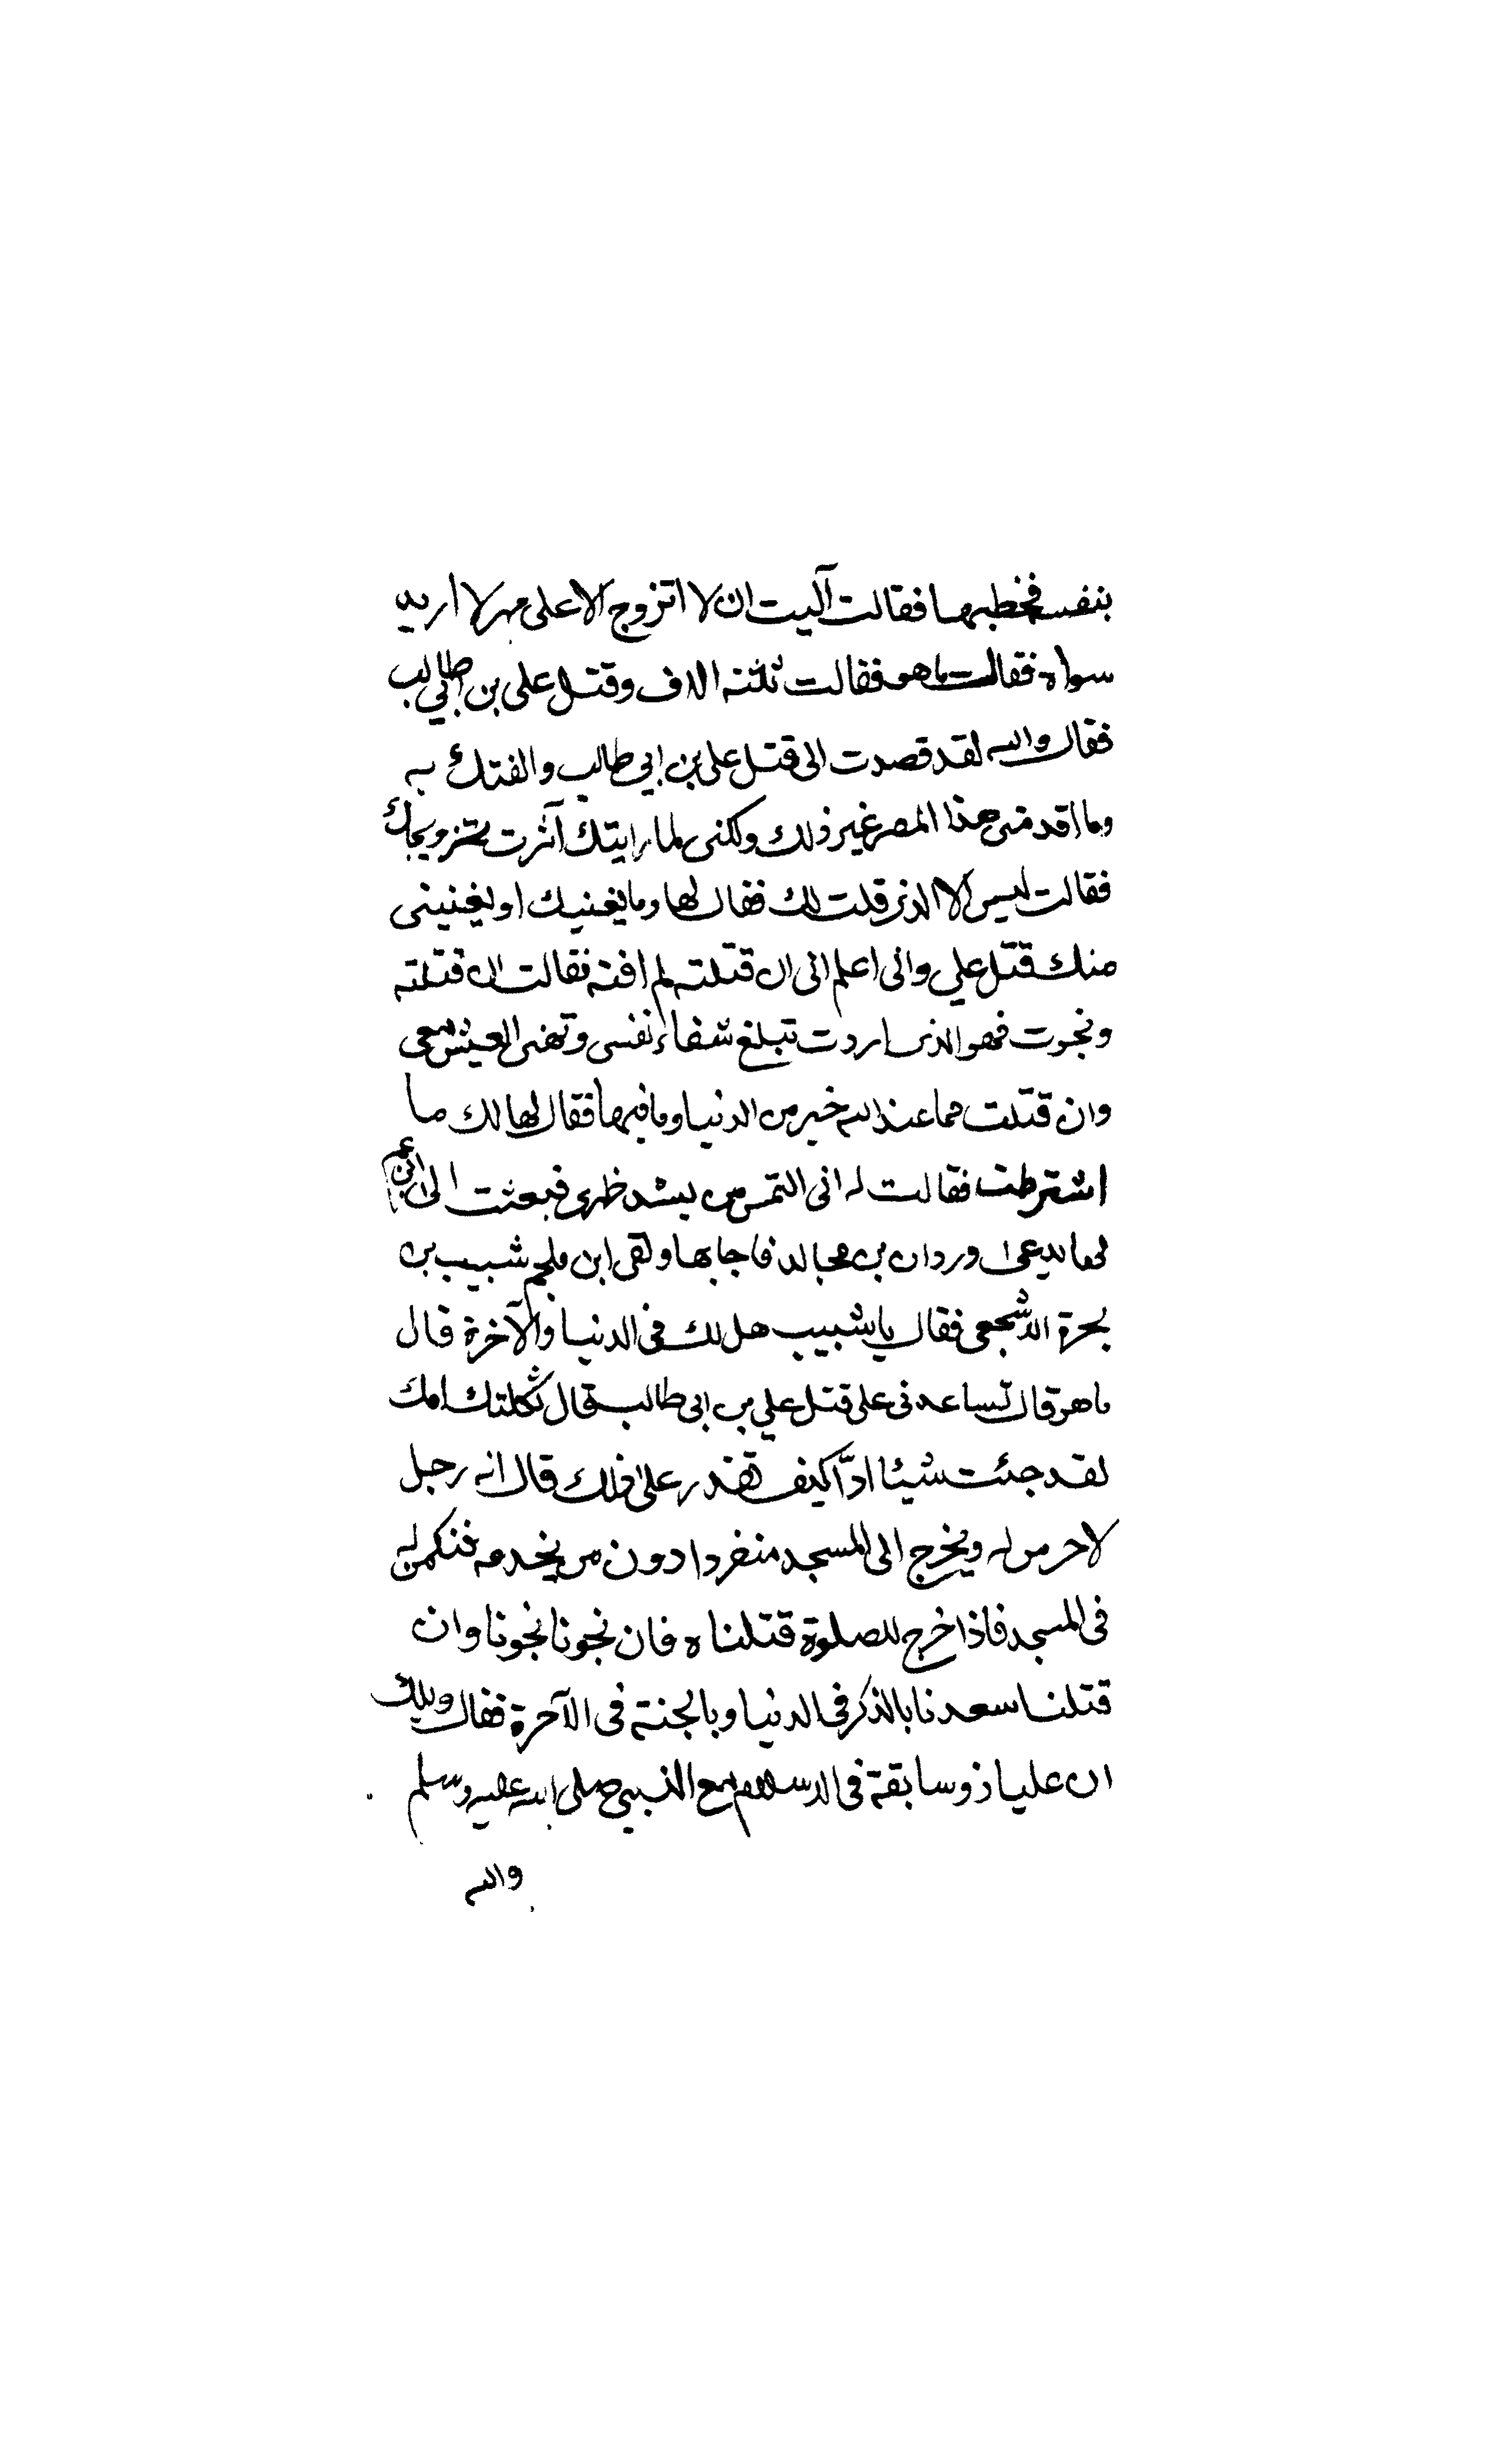 بنفسه فخطبها فقالت آليت ان لا اتزوج الا على مهر لا اريد
سواه فقالت ما هو فقالت ثلثة الاف وقتل على بن ابي طالب
فقال والله لقد قصدت الى قتل على بن ابي طالب والفتك به
وما اقدمنى هذا المصر غير ذلك ولكنى لما رايتك آثرت تزويجك
فقالت ليس الا الذى قلت لك فقال لها وما يغنيك او يغنينى
منك قتل علي وانى اعلم انى ان قتلته لم افته فقالت ان قتلته
ونجوت فهو الذى اردت تبلغ شفاء نفسى وتهنى العيش معى
وان قتلت فما عند الله خير من الدنيا وما فيها فقال لها لك ما
اشترطت فقالت له انى التمس من يشد ظهرى فبعثت الى ابن عم
لها يدعى وردان بن مجالد فاجابها ولقى ابن ملجم شبيب بن
بجرة الاشجعى فقال يا شبيب هل لك فى الدنيا والآخرة قال
ما هو قال تساعدنى على قتل علي بن ابى طالب قال ثكلتك امك
لقد جئت شيئا ادّا كيف تقدر على ذلك قال انه رجل
لا حرس له ويخرج الى المسجد منفردا دون من يخدمه فنكمن له
فى المسجد فاذا خرج للصلوة قتلناه فان نجونا نجونا وان
قتلنا سعدنا بالذكر فى الدنيا وبالجنة فى الآخرة فقال ويلك
ان عليا ذو سابقة فى الاسلام مع النبي صلى الله عليه وسلم
والله